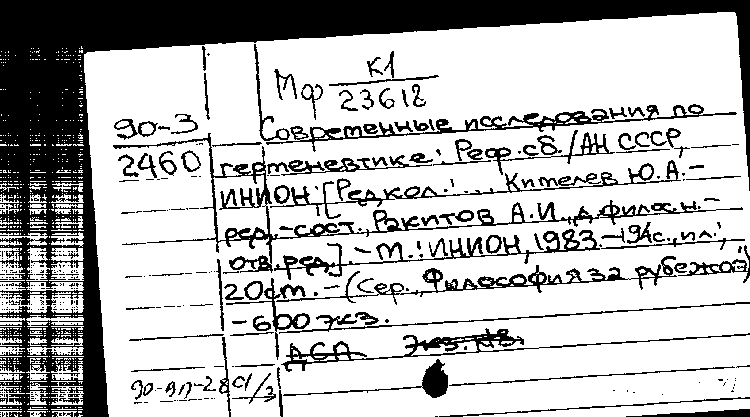 Мф К1
23618
90-3
2460
Современные исследования по
герменевтике: Реф. сб. / АН СССР,
ИНИОН; [Редкол.: ... Кимелев Ю.А. -
ред.-сост., Ракитов А.И., д. филос. н. -
отв. ред.]. - М.: ИНИОН, 1983. - 194с., ил.;
20см. - (Сер. „Философия за рубежом")
- 600 экз.
ДСП Экз. №8.